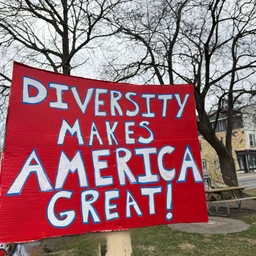 DIVERSITY
MAKES
AMERICA
GREAT!